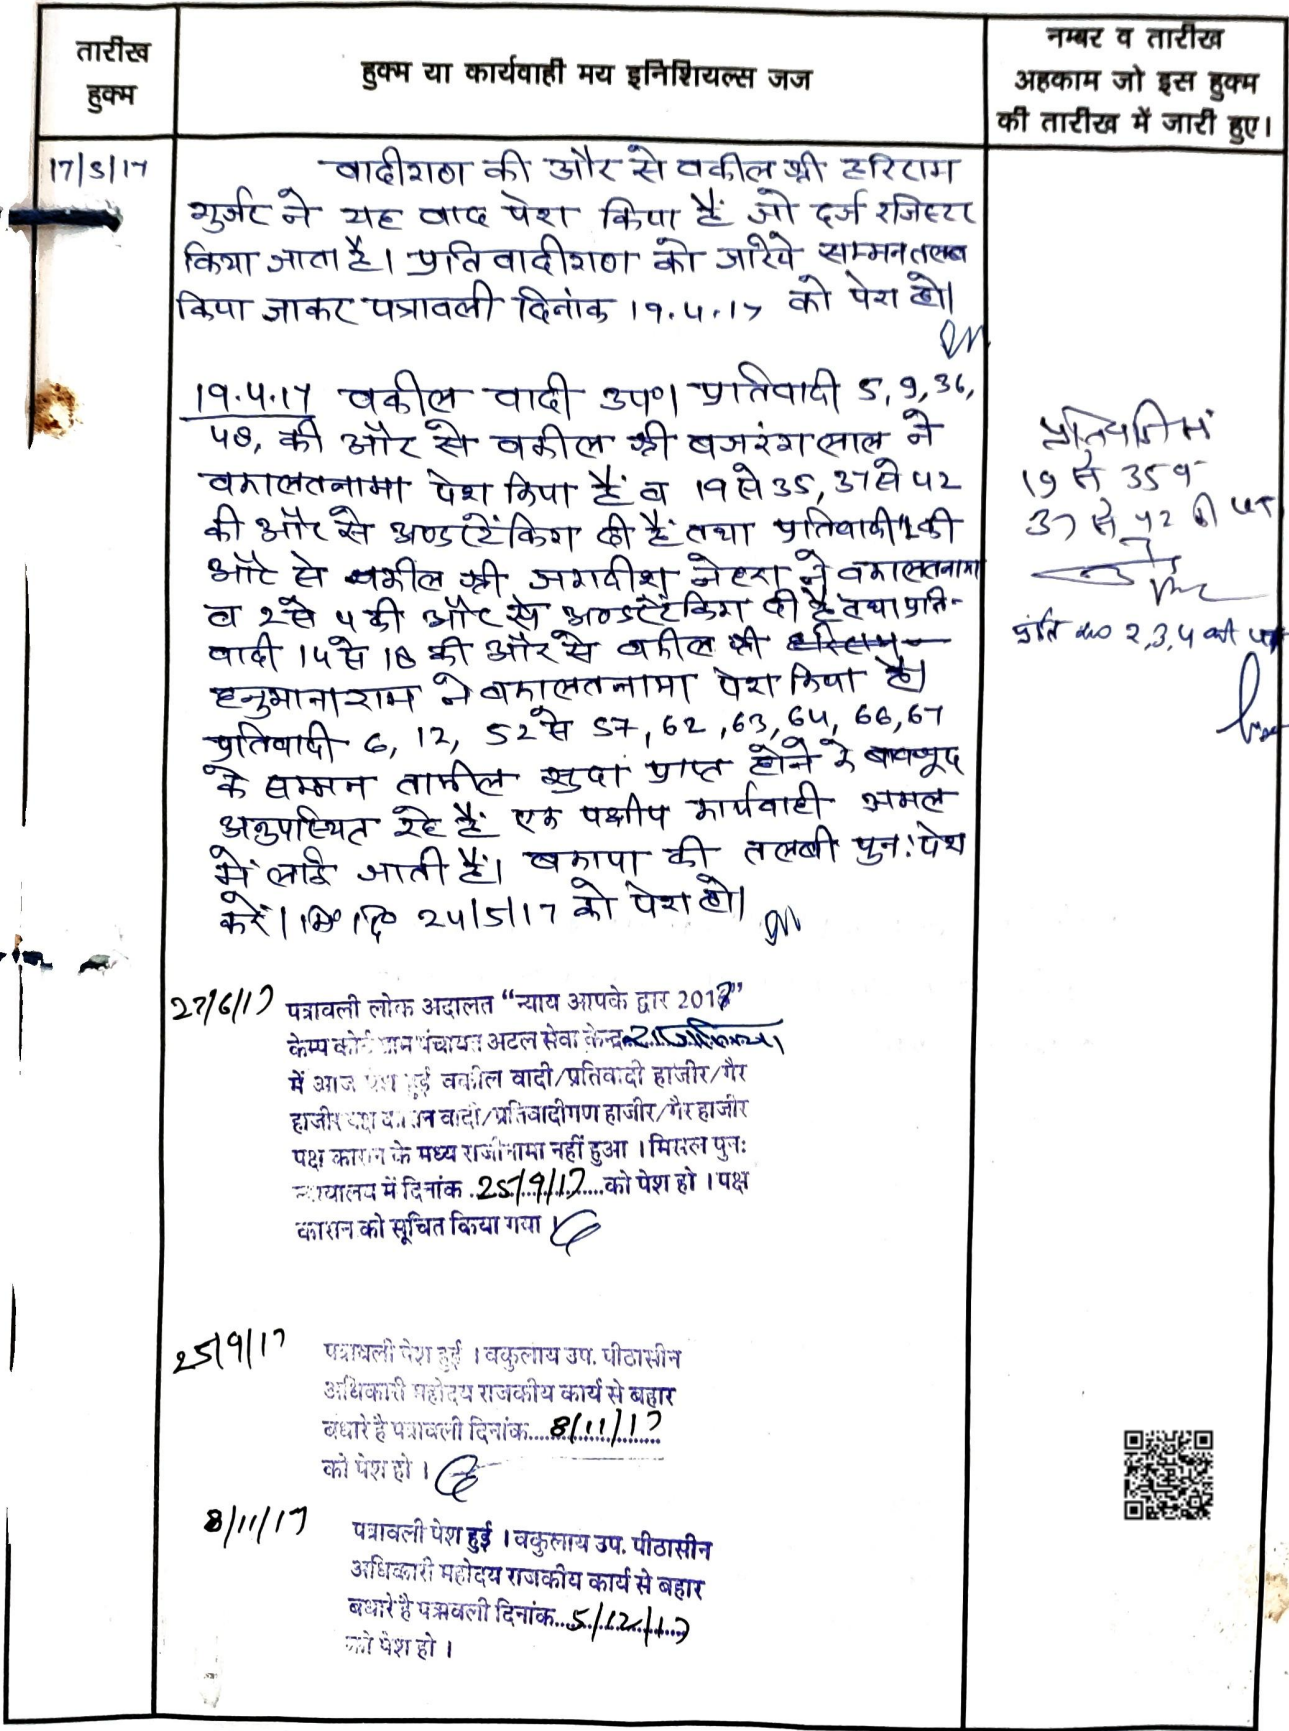 तारीख
हुक्म
हुक्म या कार्यवाही मय इनिशियल्स जज
नम्बर व तारीख
अहकाम जो इस हुक्म
की तारीख में जारी हुए।
17/3/17
वादीगण की और से वकील श्री हरिराम
गुर्जर ने यह वाद पेश किया है जो दर्ज रजिस्टर
किया जाता है। प्रतिवादीगण को जरिये सम्मन तलब
किया जाकर पत्रावली दिनांक 19.4.17 को पेश हो।
19.4.17 वकील वादी उप०। प्रतिवादी 5, 9, 36,
48, की और से वकील श्री बजरंगलाल ने
वकालतनामा पेश किया है व 19 से 35, 37 से 42
की और से अण्डरटेंकिग दी है तथा प्रतिवादी 1 की
और से वकील श्री जगदीश नेहरा ने वकालतनामा
व 2 से 4 की और से अण्डरटेंकिग दी है तथा प्रति-
वादी 14 से 18 की और से वकील श्री
हनुमानाराम ने वकालतनामा पेश किया है।
प्रतिवादी 6, 12, 52 से 57, 62, 63, 64, 66, 67
के सम्मन तामील सुदा प्राप्त होने के बावजूद
अनुपस्थित रहे हैं एक पक्षीय कार्यवाही अमल
में लाई जाती हैं। बकाया की तलबी पुन: पेश
करें। 24/5/17 को पेश हो।
19 से 35 व
37 से 42 की
2, 3, 4 की
27/6/17 पत्रावली लोक अदालत “न्याय आपके द्वार 2017”
केम्प कोर्ट ग्राम पंचायत अटल सेवा केन्द्र
में आज पेश हुई वकील वादी/प्रतिवादी हाजीर/गैर
हाजीर पक्ष कारान वादी/प्रतिवादीगण हाजीर/गैर हाजीर
पक्ष कारान के मध्य राजीनामा नहीं हुआ । मिसल पुनः
न्यायालय में दिनांक 25/9/17 को पेश हो । पक्ष
कारान को सूचित किया गया ।
25/9/17 पत्रावली पेश हुई । वकुलाय उप. पीठासीन
अधिकारी महोदय राजकीय कार्य से बहार
बधारे है पत्रावली दिनांक....8/11/17
को पेश हो ।
8/11/17 पत्रावली पेश हुई । वकुलाय उप. पीठासीन
अधिकारी महोदय राजकीय कार्य से बहार
बधारे है पत्रावली दिनांक....5/12/17
को पेश हो ।